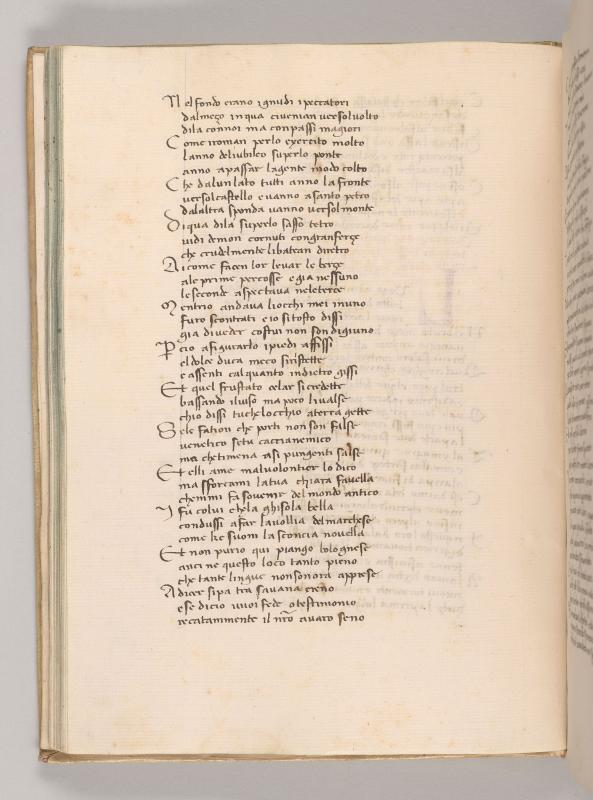 N el fondo erano ignudi ipeccatori
dalmeço inqua civenian versolvolto
dila con noi ma conpassi magiori
C ome iroman perlo exercito molto
lanno deliubileo superlo ponte
anno apassar lagente modo colto
C he dalunlato tutti anno la fronte
versolcastello e vanno asanto petro
dalaltra sponda vanno versolmonte
D i qua dila superlo sasso tetro
vidi demon cornuti congranferçe
che crudelmente libatean diretro
A i come facen lor levar le berçe
ale prime percosse e gia nessuno
le seconde aspectava neleterce
M entrio andava liocchi mei inuno
furo scontrati e io sitosto dissi
gia diveder costui non son digiuno
P cio afigurarlo ipiedi affissi
el dolce duca meco siristette
e assenti calquanto indietro gissi
E t quel frustato celar sicredette
bassando ilviso ma poco livalse
chio dissi tuchelocchio aterra gette
S ele fation che porti non son false
venetico setu caccianemico
ma chetimena asi pungenti salse
E t elli ame malvolontier lo dico
ma sforcami latua chiara favella
chemmi fa sovenir del mondo antico
I fu colui chela ghisola bella
condussi afar lavollia delmarchese
come ke suoni la sconcia novella
E t non purio qui piango bolognese
anci ne questo loco tanto pieno
che tante lingue nonsonora apprese
A dicer sipa tra savana e reno
ese dicio vuoi fede otestimonio
recatammente il nro avaro seno